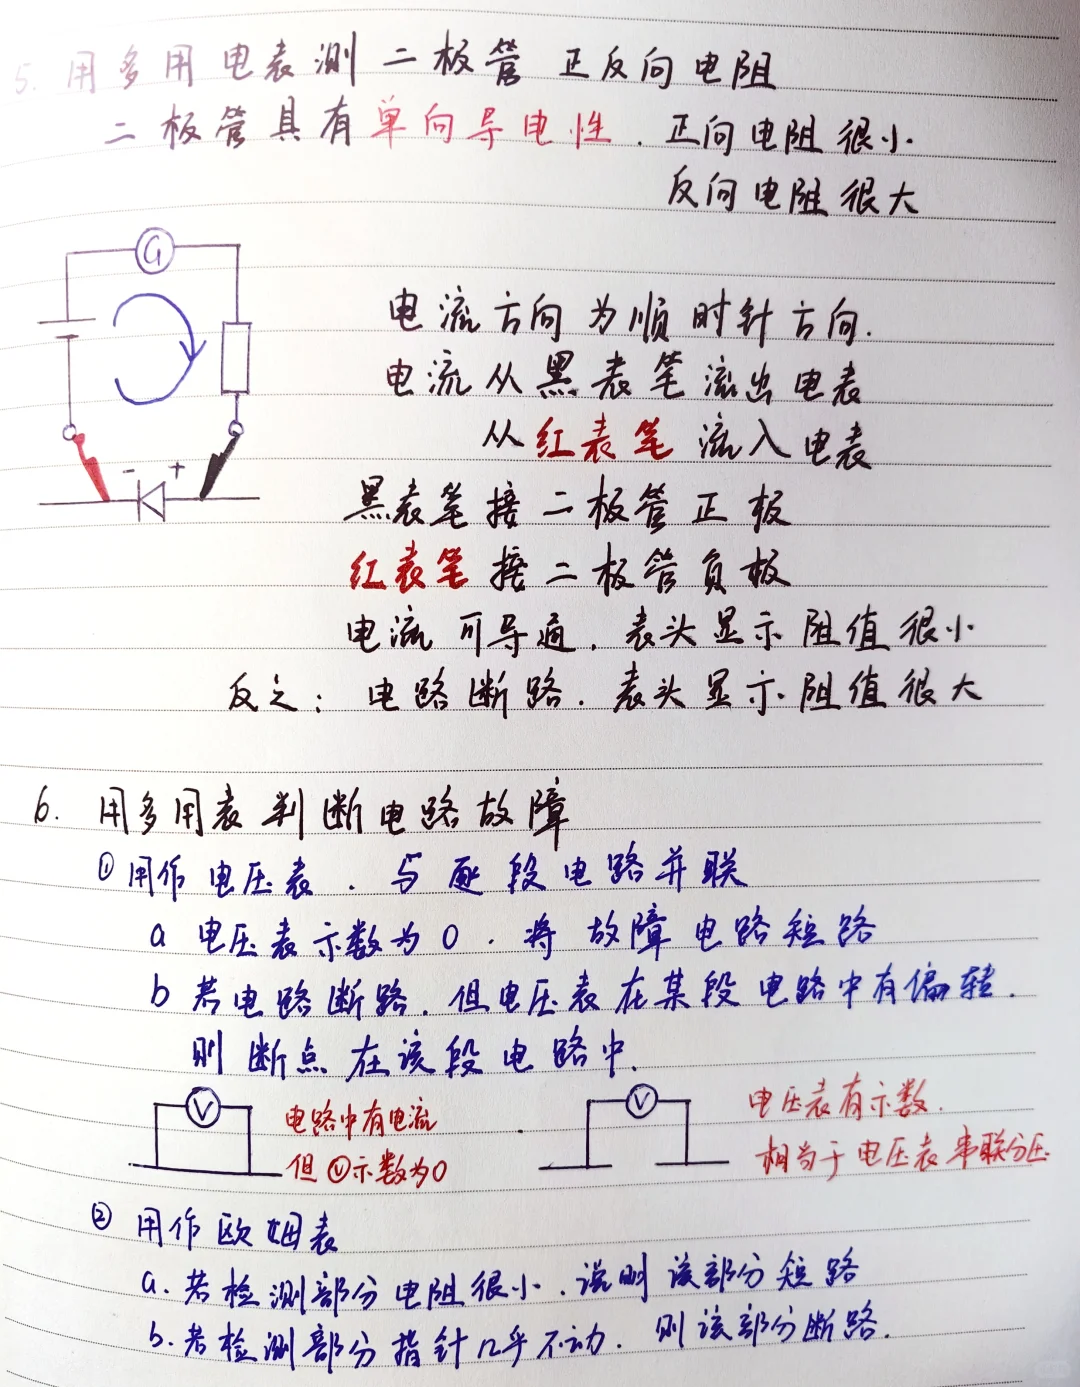 5. 用多用电表测 二极管 正反向电阻
二极管具有单向导电性. 正向电阻很小.
反向电阻很大
G
电流方向为顺时针方向.
电流从黑表笔流出电表
从红表笔流入电表
- +
黑表笔接二极管正极
红表笔接二极管负极
电流可导通. 表头显示阻值很小
反之: 电路断路. 表头显示阻值很大
6. 用多用表判断电路故障
① 用作电压表. 与逐段电路并联
a 电压表示数为0. 将故障电路短路
b 若电路断路. 但电压表在某段电路中有偏转.
则断点在该段电路中.
V
电路中有电流
但Ⓥ示数为0
V
电压表有示数.
相当于电压表串联分压
② 用作欧姆表
a. 若检测部分电阻很小. 说明该部分短路
b. 若检测部分指针几乎不动. 则该部分断路.